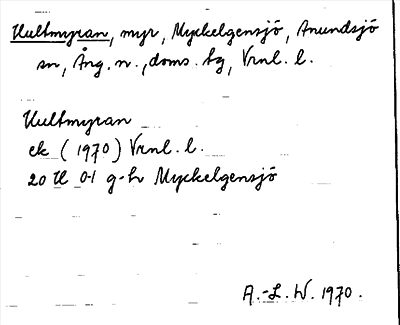 Kultmyran, myr, Myckelgensjö, Anundsjö
sn, Ång. n., doms. tg, Vrnl. l.
Kultmyran
ek (1970) Vrnl. l.
20 H 0-1 g-h Myckelgensjö
A.-L. W. 1970.